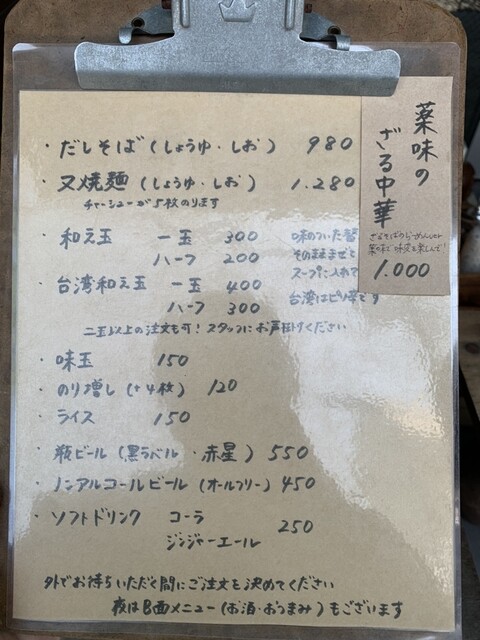 ・だしそば(しょうゆ・しお) 980
・叉焼麺(しょうゆ・しお) 1.280
チャーシューが5枚のります
・和え玉 一玉 300
ハーフ 200
味のついた替
そのままもぐ
スープに入れて
・台湾和え玉 一玉 400
ハーフ 300
台湾はピリ辛です
二玉以上の注文も可!スタッフにお声掛けください
・味玉 150
・のり増し(+4枚) 120
・ライス 150
・瓶ビール(黒ラベル・赤星) 550
・ノンアルコールビール(オールフリー) 450
・ソフトドリンク コーラ
ジンジャーエール
250
外でお待ちいただく間にご注文を決めてください
夜はB面メニュー(お酒・おつまみ)もございます
薬味の
ざる中華
1.000